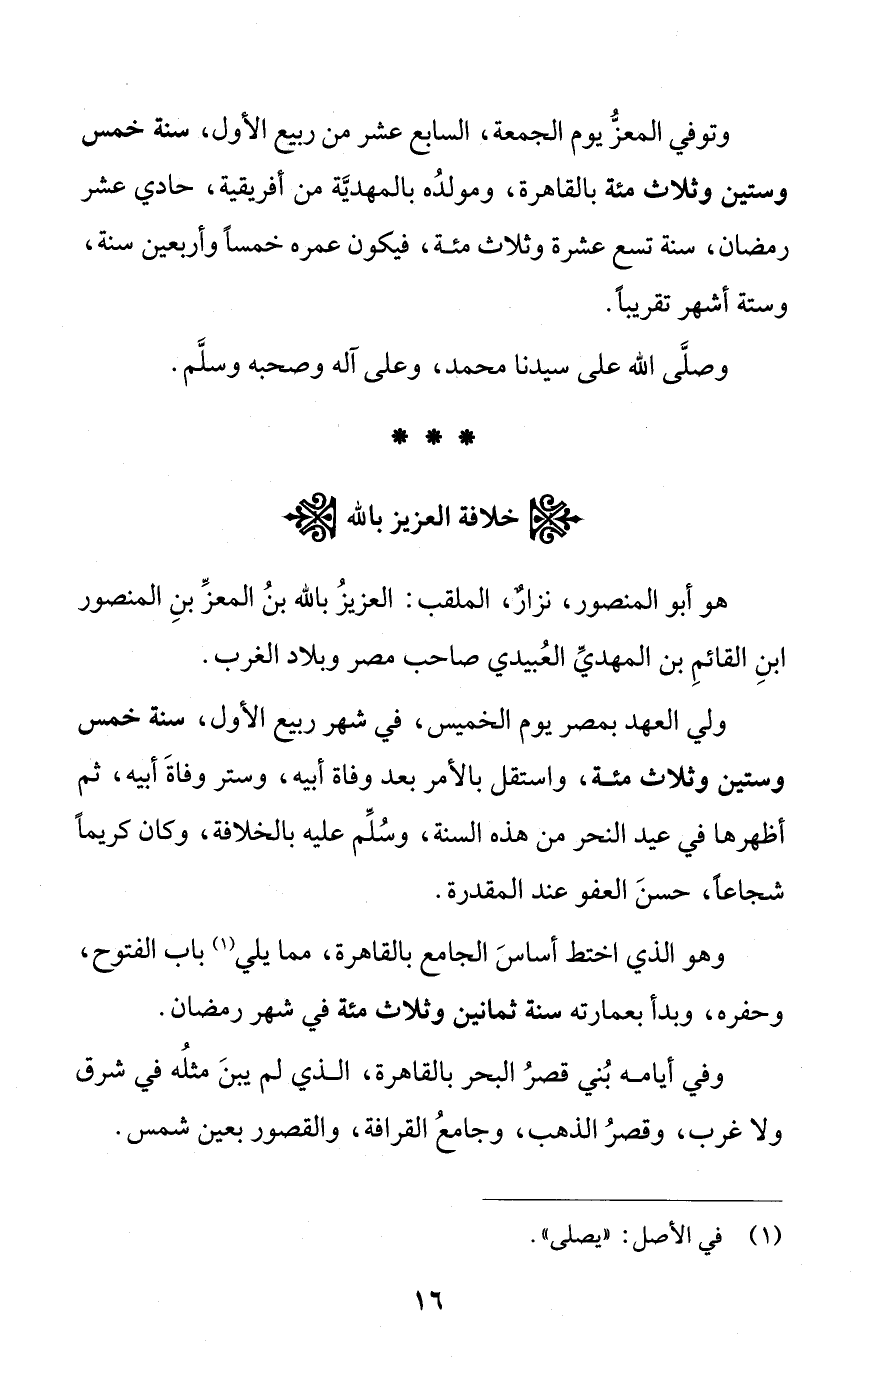 وتوفي المعزُّ يوم الجمعة، السابع عشر من ربيع الأول، سنة خمس
وستين وثلاث مئة بالقاهرة، ومولدُه بالمهديَّة من أفريقية، حادي عشر
رمضان، سنة تسع عشرة وثلاث مئة، فيكون عمره خمساً وأربعين سنة،
وستة أشهر تقريباً.
وصلَّى الله على سيدنا محمد، وعلى آله وصحبه وسلَّم.
* * *
خلافة العزيز بالله
هو أبو المنصور، نزارٌ، الملقب: العزيزُ بالله بنُ المعزِّ بنِ المنصور
ابنِ القائمِ بن المهديِّ العُبيدي صاحب مصر وبلاد الغرب.
ولي العهد بمصر يوم الخميس، في شهر ربيع الأول، سنة خمس
وستين وثلاث مئة، واستقل بالأمر بعد وفاة أبيه، وستر وفاةَ أبيه، ثم
أظهرها في عيد النحر من هذه السنة، وسُلِّم عليه بالخلافة، وكان كريماً
شجاعاً، حسنَ العفو عند المقدرة.
وهو الذي اختط أساسَ الجامع بالقاهرة، مما يلي(١) باب الفتوح،
وحفره، وبدأ بعمارته سنة ثمانين وثلاث مئة في شهر رمضان.
وفي أيامه بُني قصرُ البحر بالقاهرة، الذي لم يبنَ مثلُه في شرق
ولا غرب، وقصرُ الذهب، وجامعُ القرافة، والقصور بعين شمس.
(١) في الأصل: «يصلى».
١٦